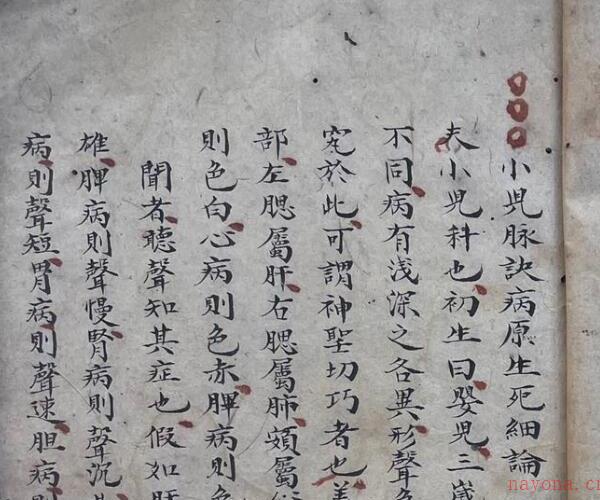 小兒脉訣病原生死細論
夫小兒科也初生曰嬰兒三歲
不同病有淺深之各異形聲色
究於此可謂神聖切巧者也
部左腮屬肝右腮屬肺頞屬
則色白心病則色赤脾病則色
聞者聽聲知其症也假如肝
雄脾病則聲慢腎病則聲沉
病則聲短胃病則聲速胆病則
nayona.cn